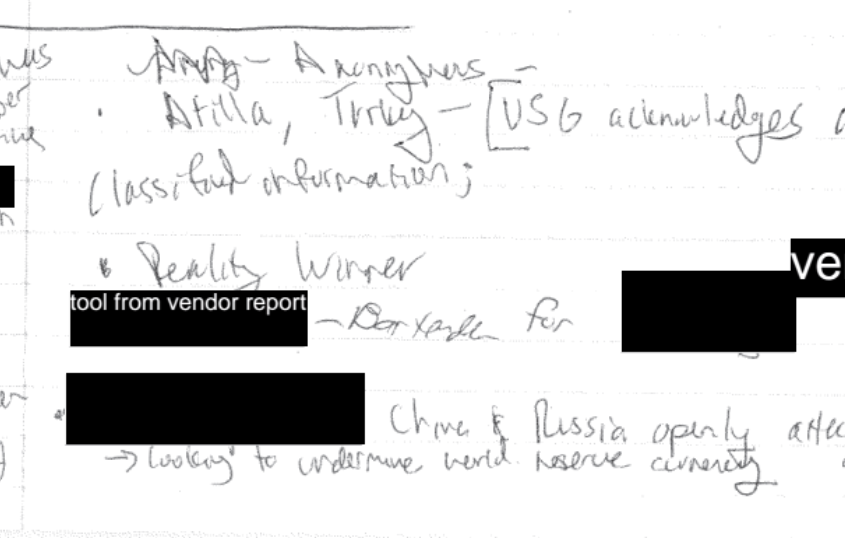 Anonymous -
· Atilla, Turkey - [USG acknowledges
Classified information;
· Reality Winner
ve
tool from vendor report - for
China & Russia openly
→ looking to undermine world reserve currency